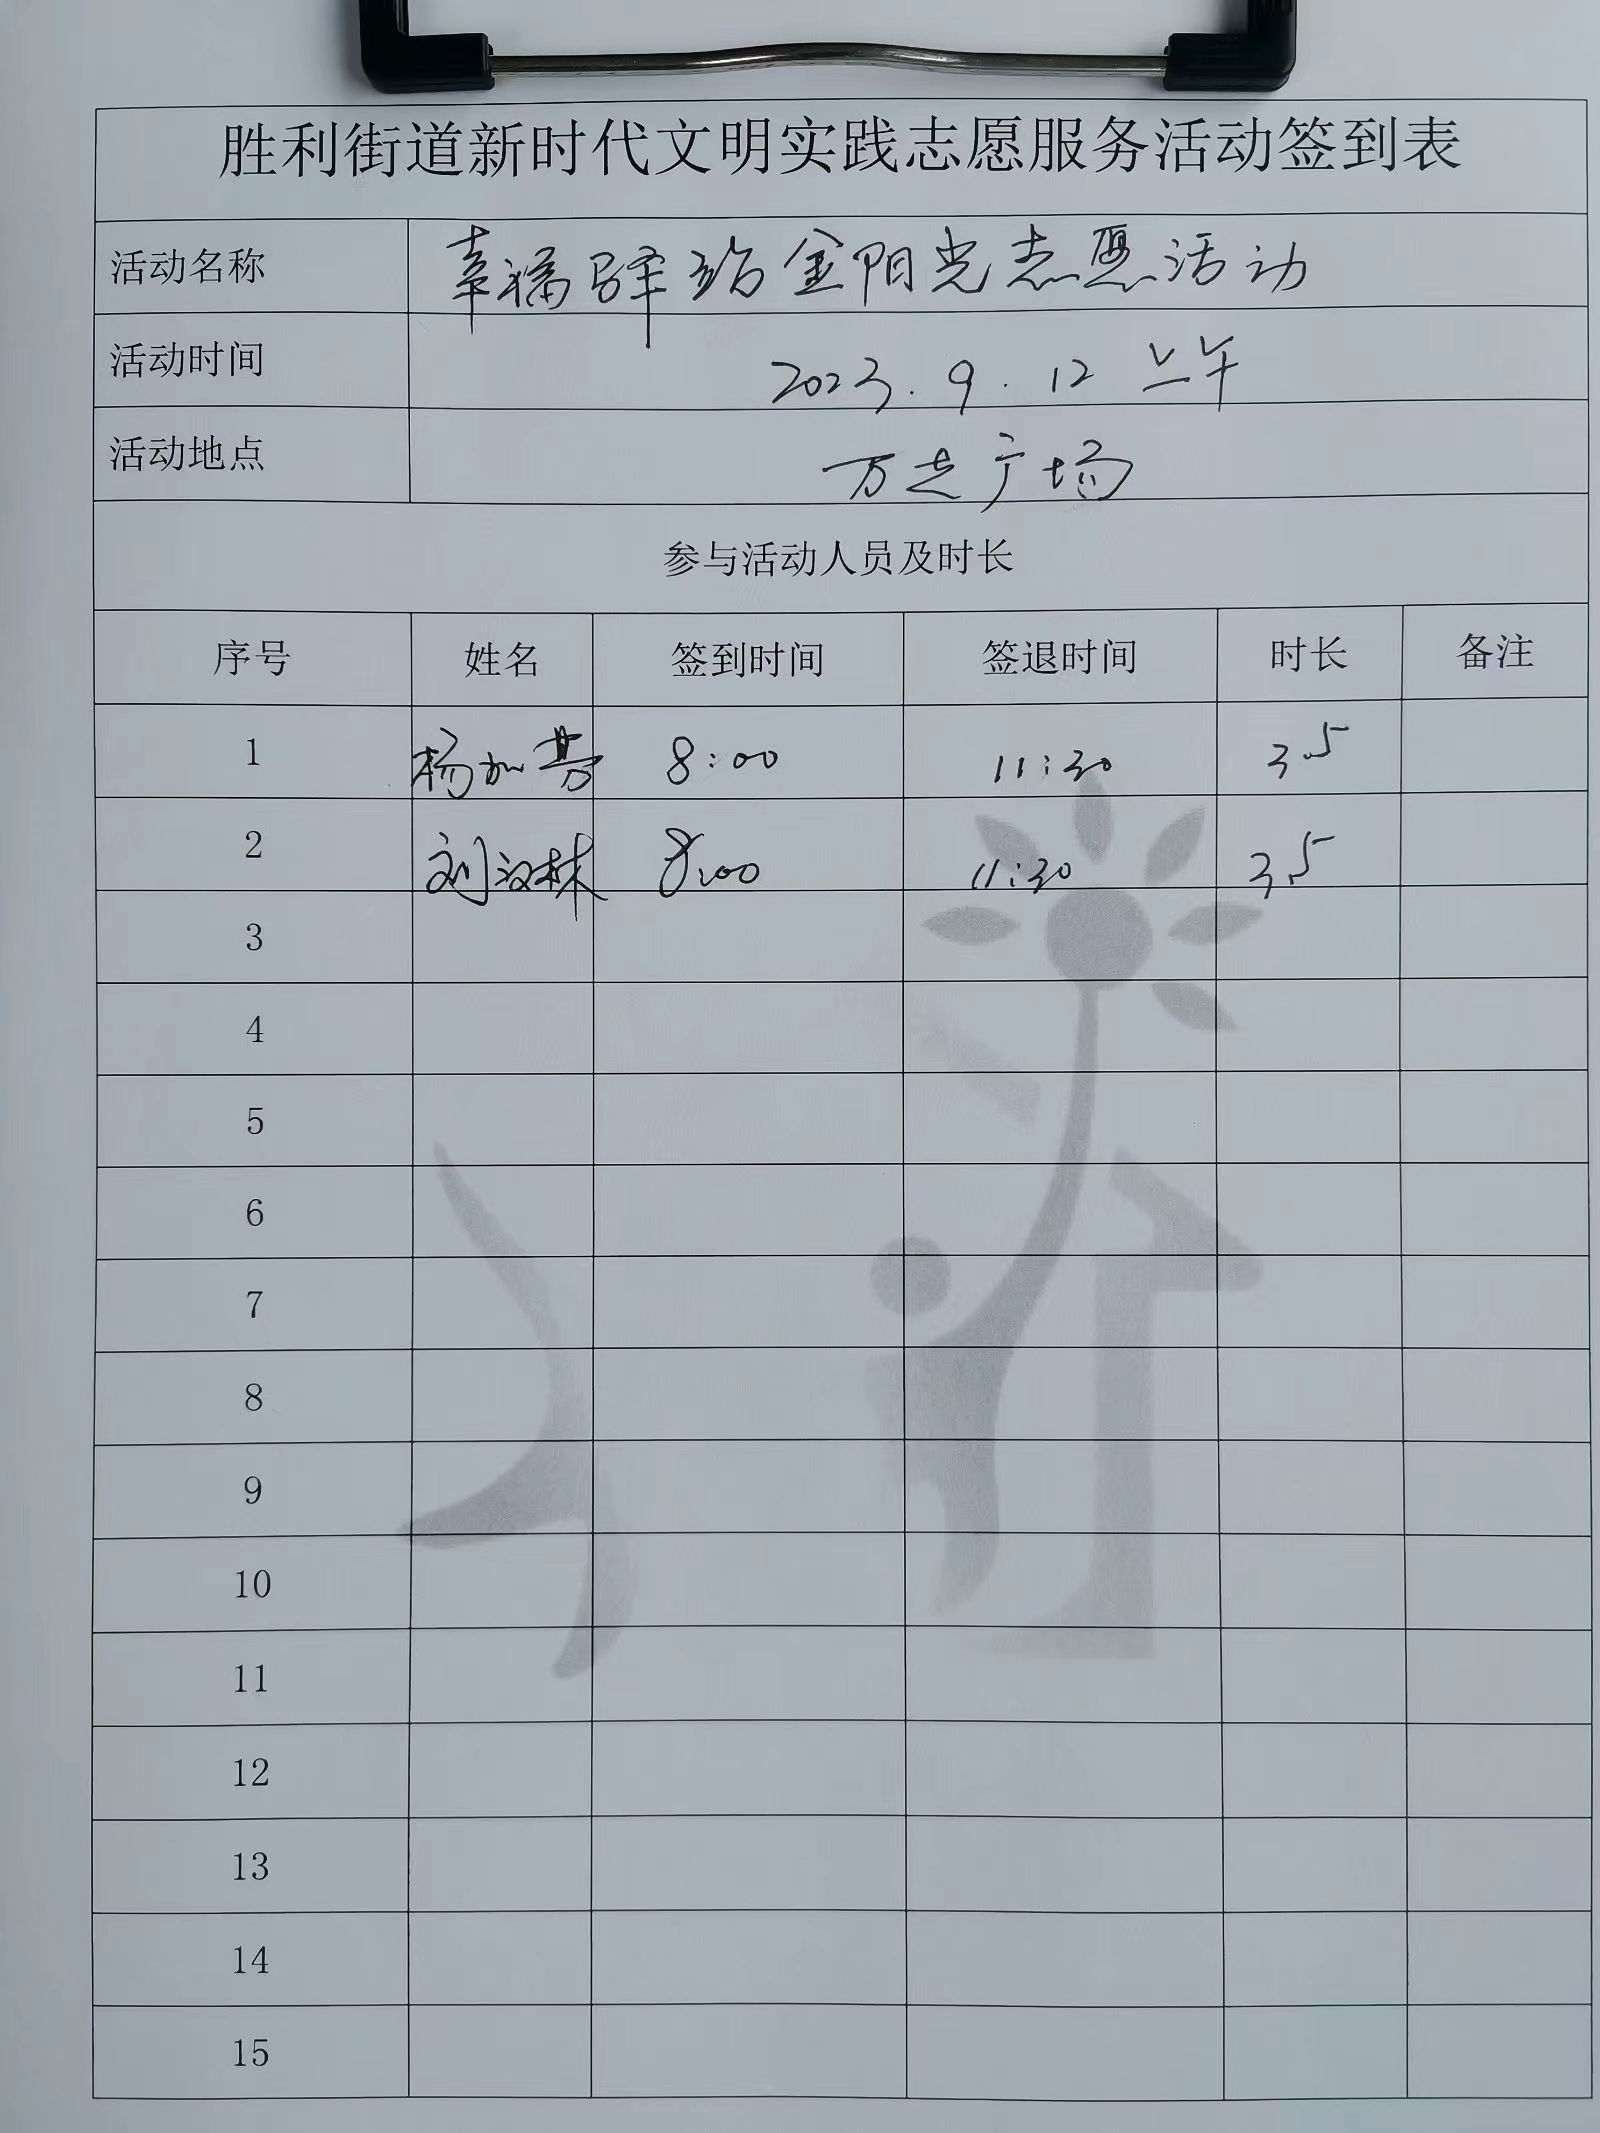 胜利街道新时代文明实践志愿服务活动签到表
活动名称 幸福驿站金阳光志愿活动
活动时间 2023.9.12 上午
活动地点 万达广场
参与活动人员及时长
序号 姓名 签到时间 签退时间 时长 备注
1 杨加芳 8:00 11:30 3.5
2 刘汉林 8:00 11:30 3.5
3
4
5
6
7
8
9
10
11
12
13
14
15